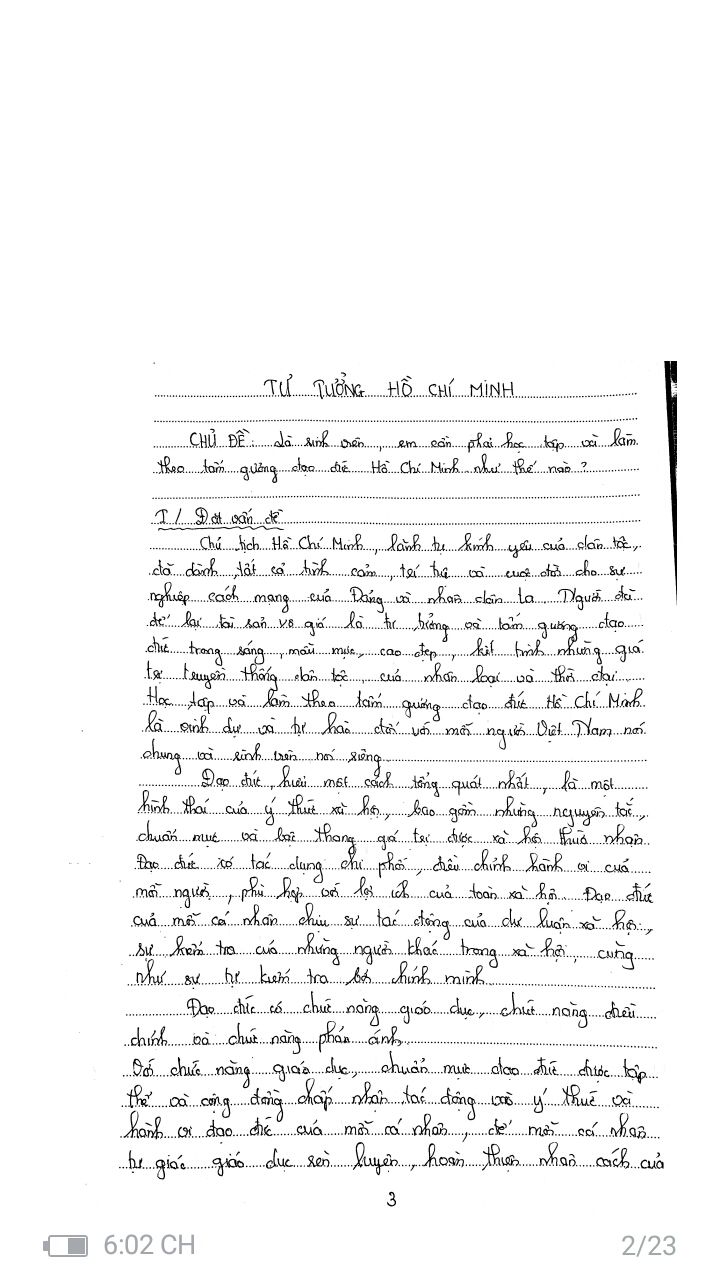 TƯ TƯỞNG HỒ CHÍ MINH
CHỦ ĐỀ: Là sinh viên, em cần phải học tập và làm
theo tấm gương đạo đức Hồ Chí Minh như thế nào?
I/ Đặt vấn đề
Chủ tịch Hồ Chí Minh, lãnh tụ kính yêu của dân tộc,
đã dành tất cả tình cảm, trí tuệ và cuộc đời cho sự
nghiệp cách mạng của Đảng và nhân dân ta. Người đã
để lại tài sản vô giá là tư tưởng và tấm gương đạo
đức trong sáng, mẫu mực, cao đẹp, kết tinh những giá
trị truyền thống dân tộc, của nhân loại và thời đại.
Học tập và làm theo tấm gương đạo đức Hồ Chí Minh
là vinh dự và tự hào đối với mỗi người Việt Nam nói
chung và sinh viên nói riêng.
Đạo đức, hiểu một cách tổng quát nhất, là một
hình thái của ý thức xã hội, bao gồm những nguyên tắc,
chuẩn mực và bậc thang giá trị được xã hội thừa nhận.
Đạo đức có tác dụng chi phối, điều chỉnh hành vi của
mỗi người, phù hợp với lợi ích của toàn xã hội. Đạo đức
của mỗi cá nhân chịu sự tác động của dư luận xã hội,
sự kiểm tra của những người khác trong xã hội, cũng
như sự tự kiểm tra bởi chính mình.
Đạo đức có chức năng giáo dục, chức năng điều
chỉnh và chức năng phản ánh.
Với chức năng giáo dục, chuẩn mực đạo đức được tập
thể và cộng đồng chấp nhận tác động vào ý thức và
hành vi đạo đức của mỗi cá nhân, để mỗi cá nhân
tự giác giáo dục rèn luyện, hoàn thiện nhân cách của
3
6:02 CH
2/23